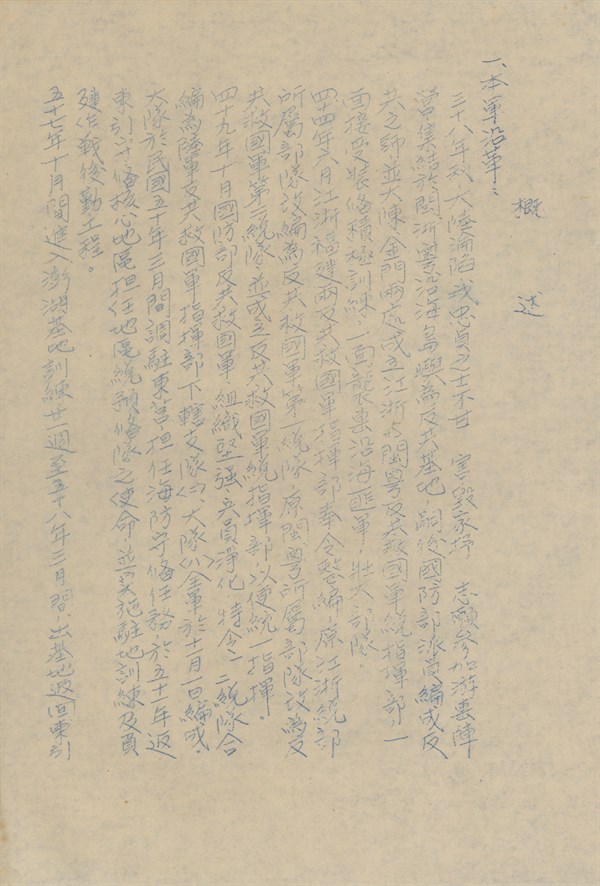 概述
一、本軍沿革：
三十八年秋，大陸淪陷我忠貞之士不甘　害毀家抒　志願參加游擊陣
營集結於閩浙粵沿海島嶼為反共基地，嗣後國防部派員編成反
共之師，並大陳、金門兩處成立江浙與閩粵反共救國軍統指揮部，一
面接受裝備積極訓練，一面襲擊沿海匪軍，壯大部隊。
四十四年六月江浙福建兩反共救國軍指揮部奉令整編，原江浙統部
所屬部隊改編為反共救國軍第一統隊，原閩粵所屬部隊改為反
共救國軍第二統隊，並成立反共救國軍統指揮部，以便統一指揮。
四十九年十月國防部反共救國軍，組織堅強，兵員淨化，特令一、二統隊合
編為陸軍反共救國軍指揮部下轄支隊㈡、大隊㈧全軍於十一月一日編成，
大隊於民國五十年三月間調駐東莒，担任海防守俻任務，於五十一年返
東引守俻核心地區担任地區統預俻隊之使命並实施駐地訓練及負
建作戰後勤工程。
五十七年十月間進入澎湖基地訓練廿一週至五十八年三月間，出基地返回東引